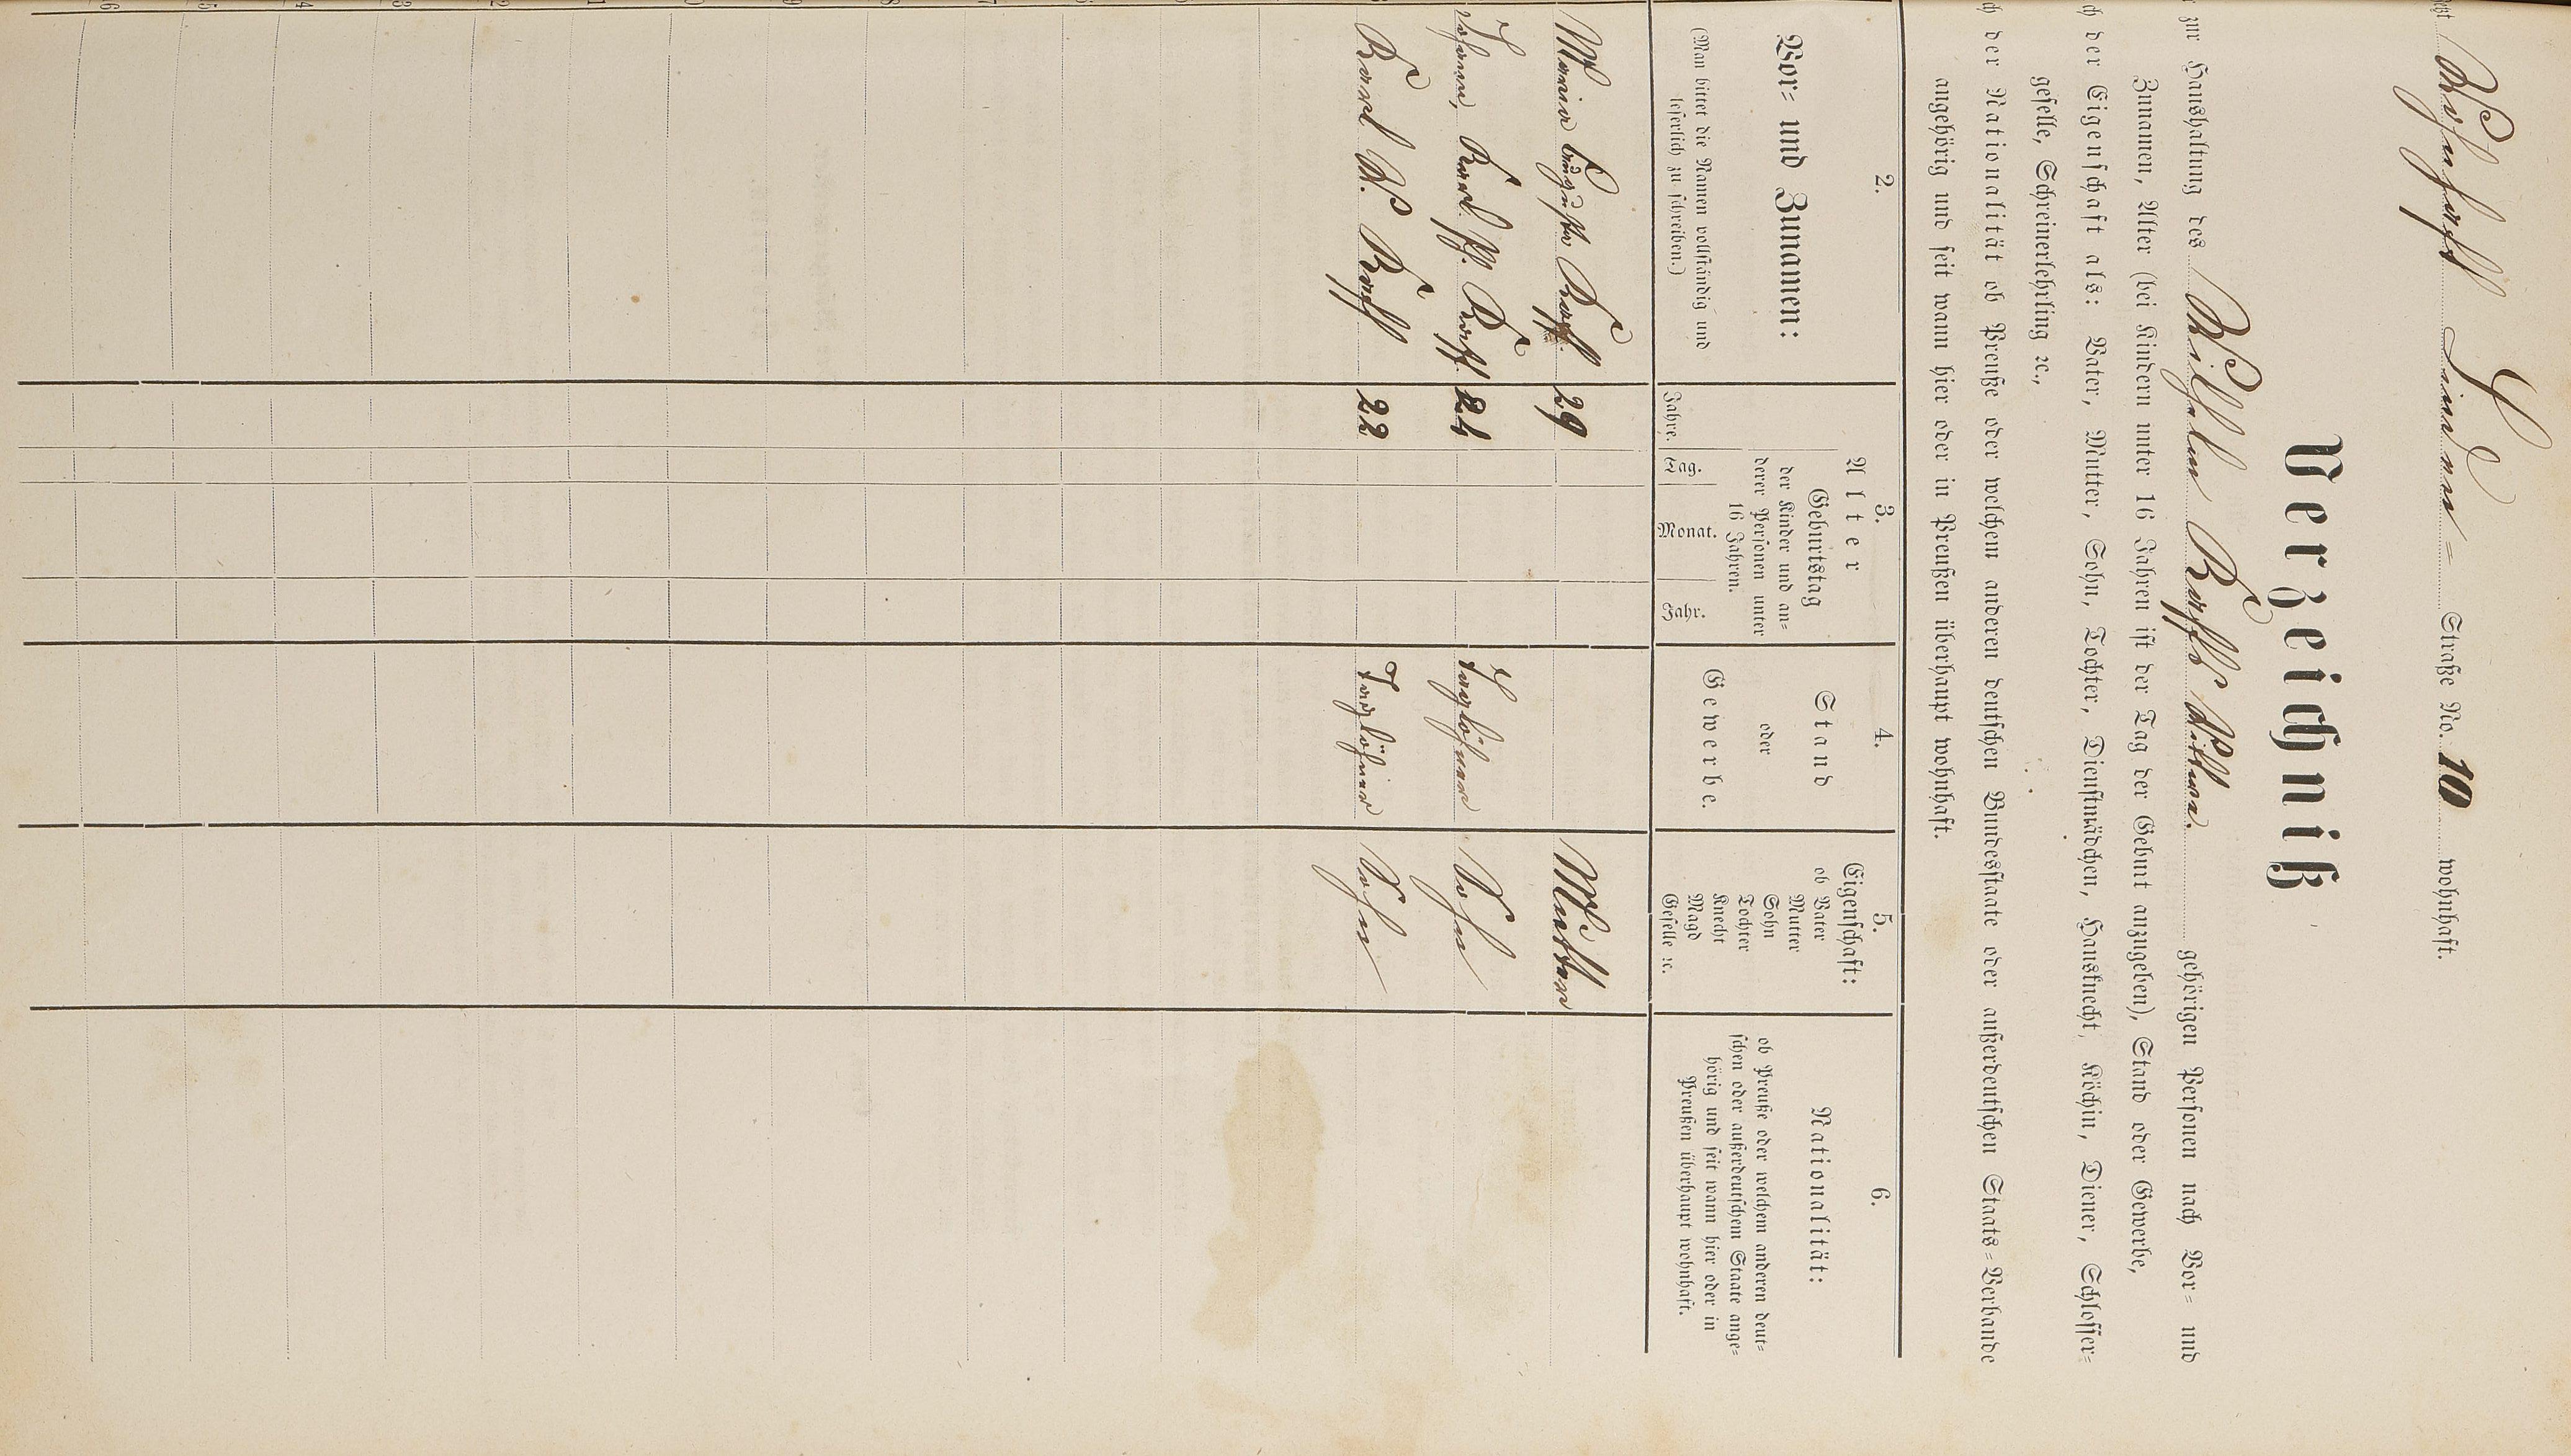 Linden= Straße No. 10 wohnhaft.
Verzeichniß
zur Haushaltung des Wilhelm gehörigen Personen nach Vor= und
Zunamen, Alter (bei Kindern unter 16 Jahren ist der Tag der Geburt anzugeben), Stand oder Gewerbe,
der Eigenschaft als: Vater, Mutter, Sohn, Tochter, Dienstmädchen, Hausknecht, Köchin, Diener, Schlosser=
geselle, Schreinerlehrling ꝛc.,
der Nationalität ob Preuße oder welchem anderen deutschen Bundesstaate oder außerdeutschen Staats=Verbande
angehörig und seit wann hier oder in Preußen überhaupt wohnhaft.
2.
Vor= und Zunamen:
(Man bittet die Namen vollständig und
leserlich zu schreiben.)
3.
Alter
Jahre.
Geburtstag
der Kinder und an=
derer Personen unter
16 Jahren.
Tag. Monat. Jahr.
4.
Stand
oder
Gewerbe.
5.
Eigenschaft:
ob Vater
Mutter
Sohn
Tochter
Knecht
Magd
Geselle ꝛc.
6.
Nationalität:
ob Preuße oder welchem anderen deut=
schen oder außerdeutschem Staate ange=
hörig und seit wann hier oder in
Preußen überhaupt wohnhaft.
Maria Auguste 29 Mutter
Johann, 24 Taglöhner Sohn
22 Taglöhner Sohn